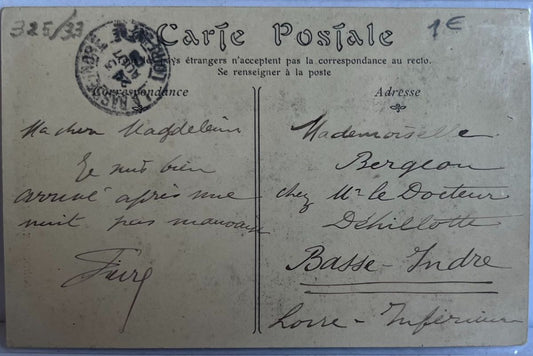 325/33
1€
Carte Postale
pays étrangers n'acceptent pas la correspondance au recto.
Se renseigner à la poste
Correspondance
Adresse
Ma chère Magdeleine
Je suis bien
arrivé après une
nuit pas mauvaise
Mademoiselle
Bergeon
chez Mr le Docteur
Basse-Indre
Loire-Inférieure